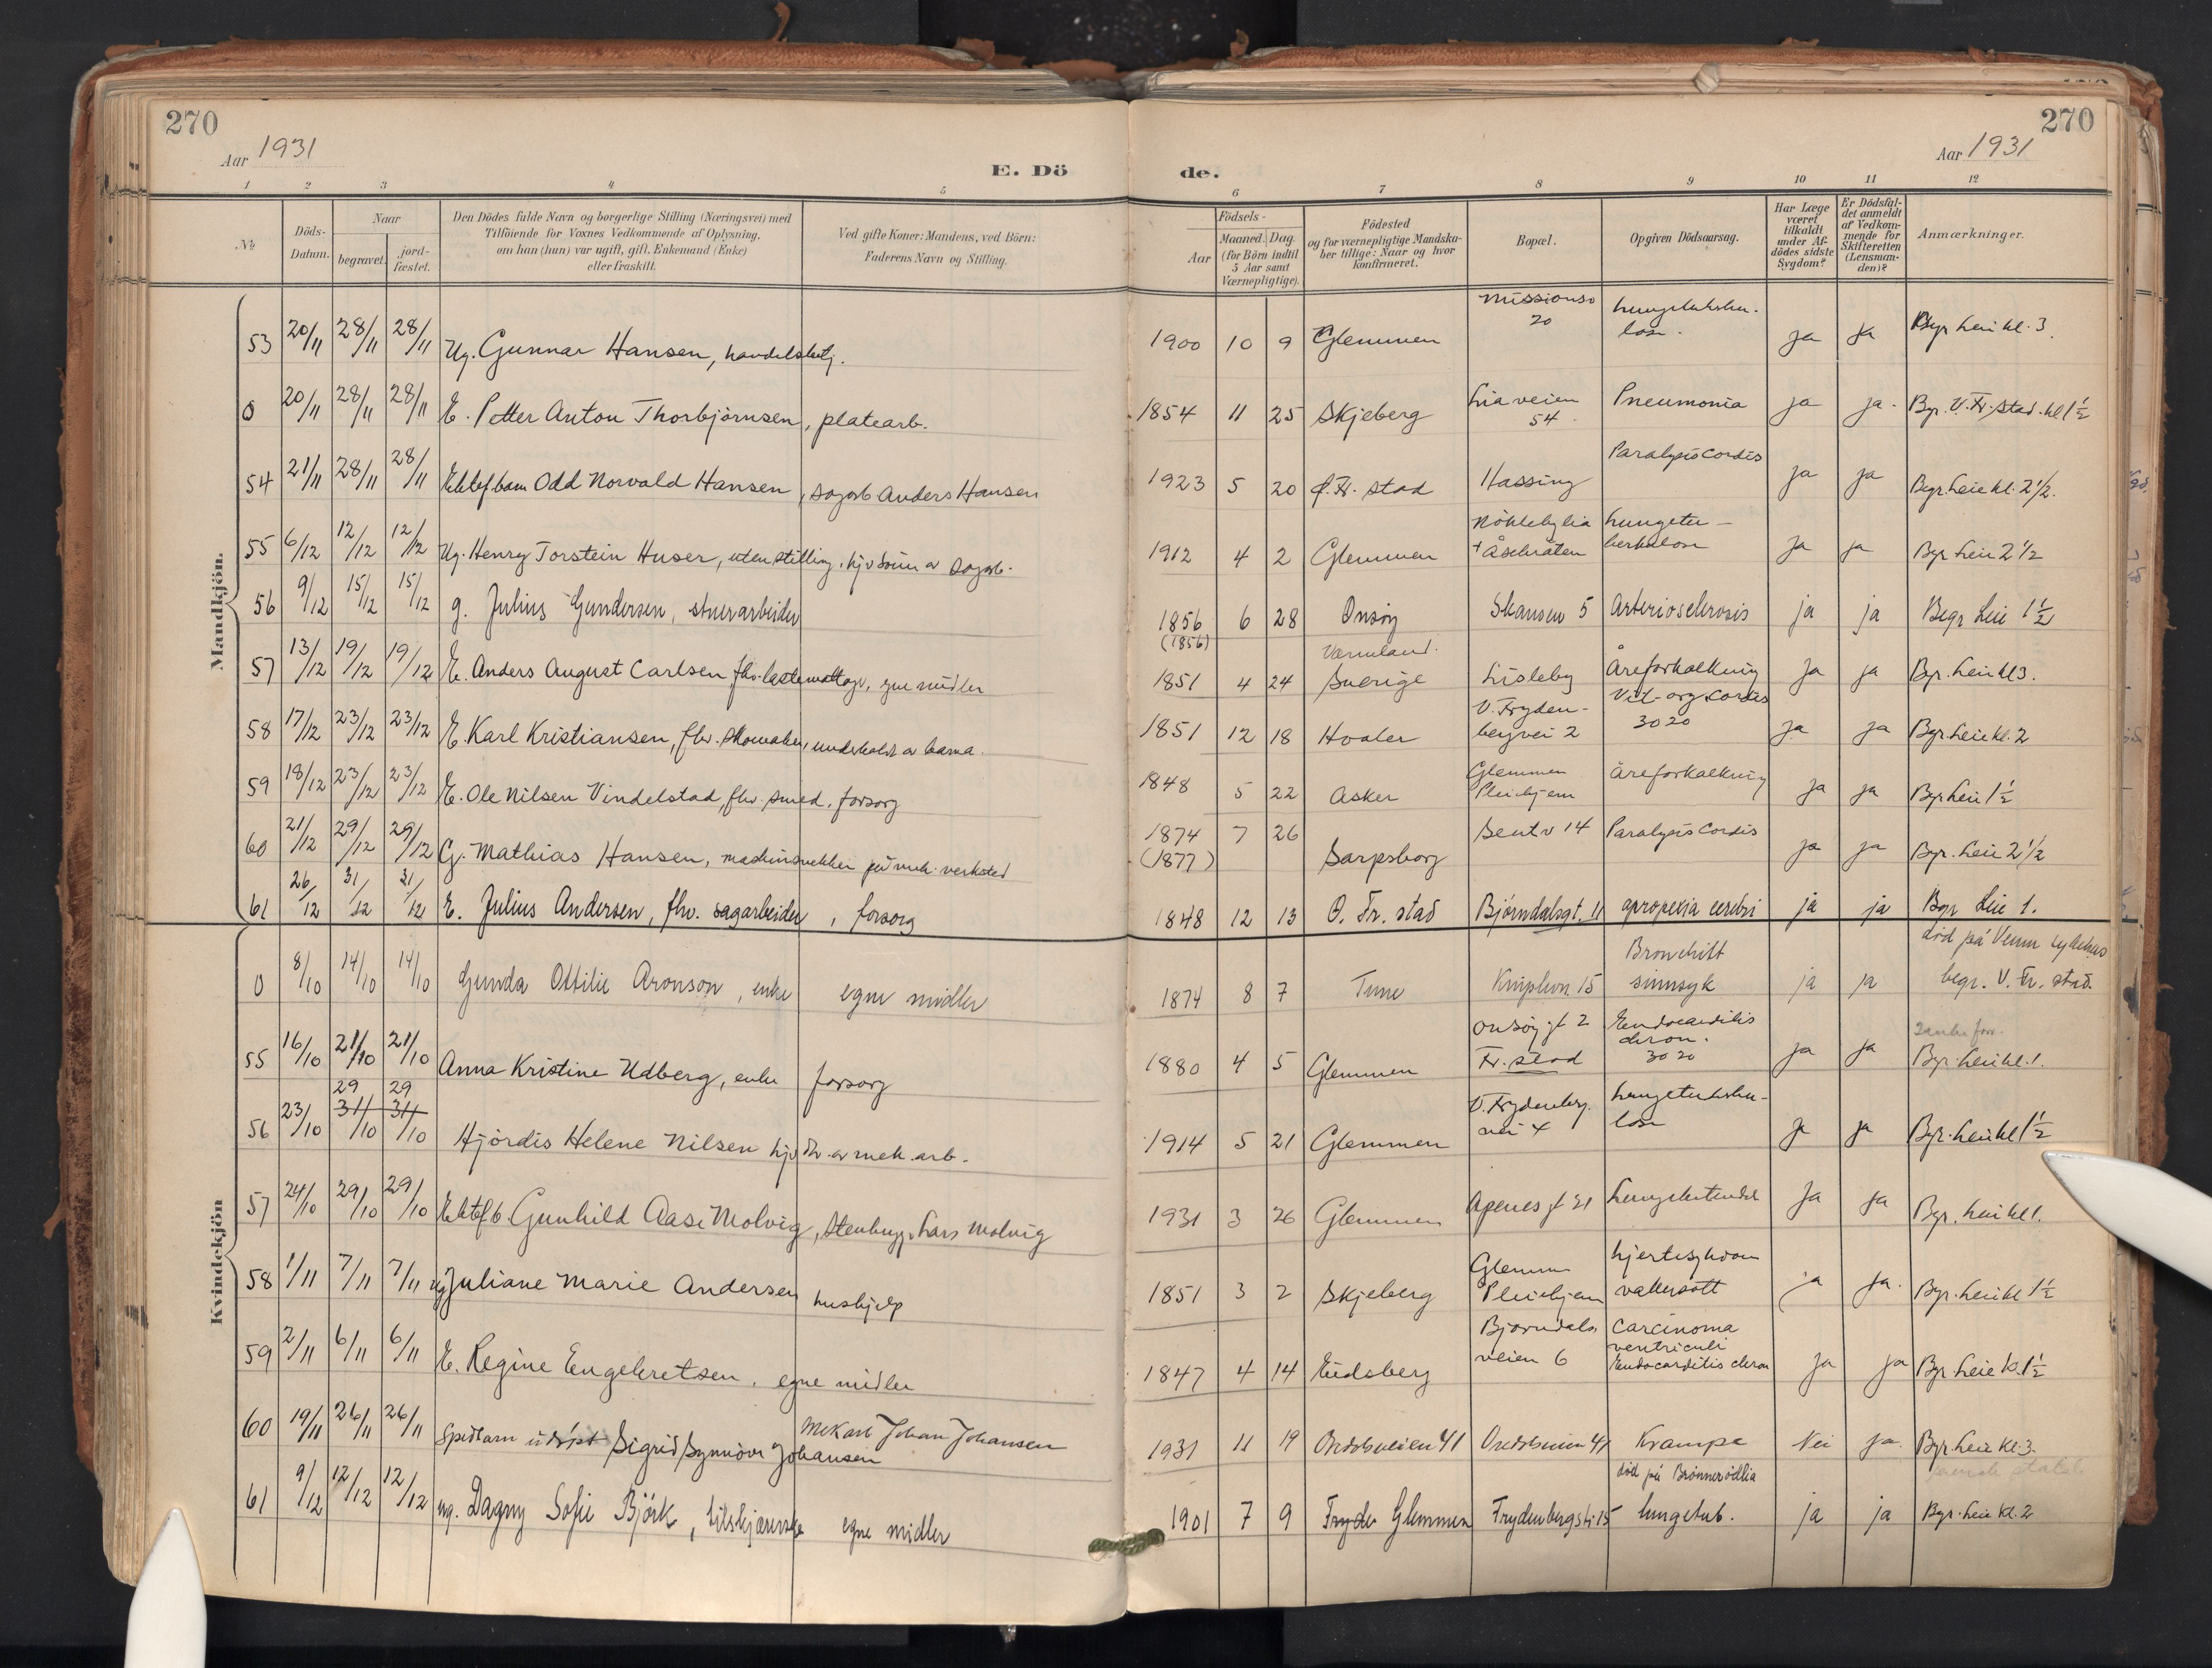 270
Aar 1931
E. Dö
1 2 3 4 5
№
Döds-Datum.
Naar
begravet.
jord-fæstet.
Den Dödes fulde Navn og borgerlige Stilling (Næringsvei) med
Tilföiende for Voxnes Vedkommende af Oplysning,
om han (hun) var ugift, gift, Enkemand (Enke)
eller fraskilt.
Ved gifte Koner: Mandens, ved Börn:
Faderens Navn og Stilling.
270
Aar 1931
de.
6 7 8 9 10 11 12
Födsels-
Aar
Maaned. Dag
(for Börn indtil
5 Aar samt
Værnepligtige).
Födested
og for værnepligtige Mandska-
ber tillige: Naar og hvor
konfirmeret.
Bopæl.
Opgiven Dödsaarsag.
Har Læge
været
tilkaldt
under Af-
dödes sidste
Sygdom?
Er Dödsfal-
det anmeldt
af Vedkom-
mende for
Skifteretten
(Lensman-
den)?
Anmærkninger.
Mandkjön.
53 20/11 28/11 28/11 Ug. Gunnar Hansen, handelsbetj. 1900 10 9 Glemmen Missionsv 20 Lungetuberku-lose. ja ja Bgr. Leie kl. 3
0 20/11 28/11 28/11 E. Petter Anton Thorbjørnsen, platearb. 1854 11 25 Skjeberg Liaveien 54 Pneumonia ja ja. Bgr. V. Fr.stad. kl 1 1/2
54 21/11 28/11 28/11 Ektef barn Odd Norvald Hansen, sagarb Anders Hansen 1923 5 20 Ø. Fr. stad Hassing Paralysis Cordis ja ja Begr. Leie kl. 2 1/2.
55 6/12 12/12 12/12 Ug. Henry Torstein Huser, uten stilling, hjv sønn av sagarb. 1912 4 2 Glemmen Nøklebylia + Åsebråten Lungetu-berkulose ja ja Bgr Leie 2 1/2
56 9/12 15/12 15/12 g. Julius Gundersen, stuerarbeider 1856 (1856) 6 28 Onsøy Skansen 5 Arteriosclerosis ja ja Begr Leie 1 1/2
57 13/12 19/12 19/12 E. Anders August Carlsen fhv. lastemottager, egne midler 1851 4 24 Värmland. Sverige Lisleby Åreforkalkning ja ja Bgr. Leie kl 3.
58 17/12 23/12 23/12 E. Karl Kristiansen, fhv. skomaker, underholdt av barna. 1851 12 18 Hvaler V. Fryden-bergvei 2 Vit. org. cordis 3020 ja ja Bgr. Leie kl. 2
59 18/12 23/12 23/12 E. Ole Nilsen Vindelstad, fhv smed, forsorg 1848 5 22 Asker Glemmen Pleiehjem åreforkalkning ja ja Bgr Leie 1 1/2
60 21/12 29/12 29/12 G. Mathias Hansen, maskinsnekker på mek. verksted 1874 (1877) 7 26 Sarpsborg Sentv 14 Paralysis Cordis ja ja Bgr. Leie 2 1/2
61 26/12 31/12 31/12 E. Julius Andersen, fhv. sagarbeider, forsorg 1848 12 13 Ø. Fr. stad Bjørndalsgt. 11 apropexia cerebri ja ja Bgr Leie 1.
Kvindekjön
0 8/10 14/10 14/10 Gunda Ottilie Aronson, enke egne midler 1874 8 7 Tune 15 Bronchitt sinnsyk ja ja død på Veum sykehus begr. V. Fr. stad.
55 16/10 21/10 21/10 Anna Kristine Udberg, enke forsorg 1880 4 5 Glemmen Onsøygt 2 Fr. stad Endocarditis chron. 3020 ja ja Bgr. Leie kl. 1.
56 23/10 29 31/10 29 31/10 Hjördis Helene Nilsen hjv D. av mek. arb. 1914 5 21 Glemmen V. Frydenberg. vei 4 Lungetuberku-lose ja ja Bgr. Leie kl 1 1/2
57 24/10 29/10 29/10 Ektef b Gunhild Aase Molvig, Stenhugg. Lars Molvig 1931 3 26 Glemmen Apenes gt 21 Lungebetendels ja ja Bgr. Leie kl 1.
58 1/11 7/11 7/11 ug Juliane Marie Andersen hushjelp 1851 3 2 Skjeberg Glemmen Pleiehjem hjertesykdom vattersott ja ja. Bgr. Leie kl 1 1/2
59 2/11 6/11 6/11 E. Regine Engebretsen, egne midler 1847 4 14 Eidsberg Bjørndals veien 6 Carcinoma ventriculi Endocarditis chron ja ja Bgr Leie kl. 1 1/2
60 19/11 26/11 26/11 Spedbarn udøpt Sigrid Synnöve Johansen Mek arb Johan Johansen 1931 11 19 Ordolveien 41 Ordolveien 41 Krampe Nei ja. Bgr. Leie kl. 3.
61 9/12 12/12 12/12 ug. Dagny Sofie Björk, tilskjærerske egne midler 1901 7 9 Fryde Glemmen Frydenbergst. 15 død på Brönnerödlia lungetub. ja ja Bgr. Leie kl. 2